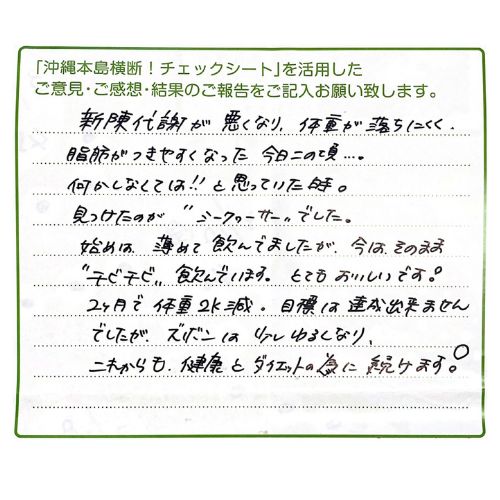 「沖縄本島横断！チェックシート」を活用した
ご意見・ご感想・結果のご報告をご記入お願い致します。
新陳代謝が悪くなり、体重が落ちにくく、
脂肪がつきやすくなった今日この頃…。
何かしなくては!!と思っていた時。
見つけたのが〝シークヮーサー〟でした。
始めは、薄めて飲んでましたが、今は、そのまま
〝チビチビ〟飲んでいます。とてもおいしいです。
2ヶ月で体重2k減。目標は達成出来ません
でしたが、ズボンは少しゆるくなり、
これからも、健康とダイエットの為に続けます。